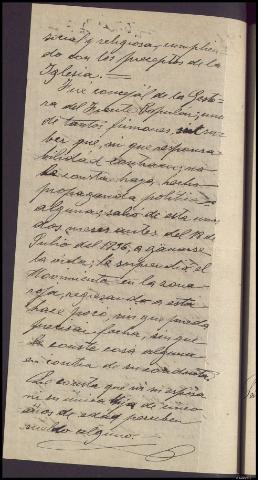 social y religiosa, cumplien-
do con los preceptos de la
Iglesia. —
Fué concejal de la Gesto-
ra del Frente Popular; uno
de tantos firmones, sin sa-
ber que, ni que responsa-
bilidad contraen; no
le consta haya hecho
propaganda política
alguna; salió de esta unos
dos meses antes del 18 de
Julio del 1936, a ganarse
la vida; le sorprendió el
Movimiento en la zona
roja, regresando a esta
hace poco, sin que pueda
precisar fecha, sin que
le conste cosa alguna
en contra de su conducta.
Que consta que ni su esposa
ni su única hija de cinco
años de edad perciben
sueldo alguno.